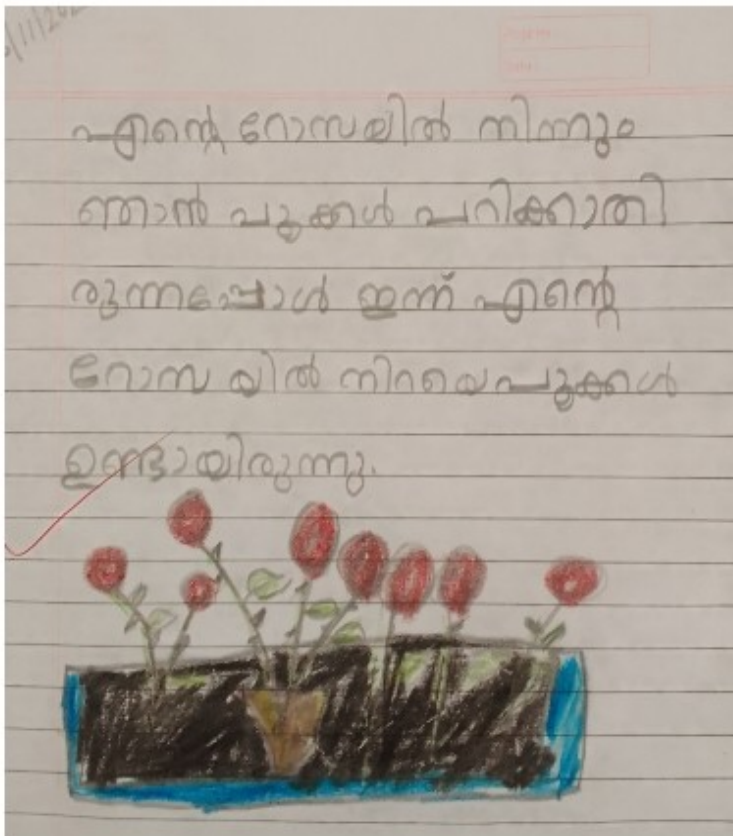 എന്റെ റോസയിൽ നിന്നും
ഞാൻ പൂക്കൾ പറിക്കാതി
രുന്നപ്പോൾ ഇന്ന് എന്റെ
റോസ യിൽ നിറയെ പൂക്കൾ
ഉണ്ടായിരുന്നു.